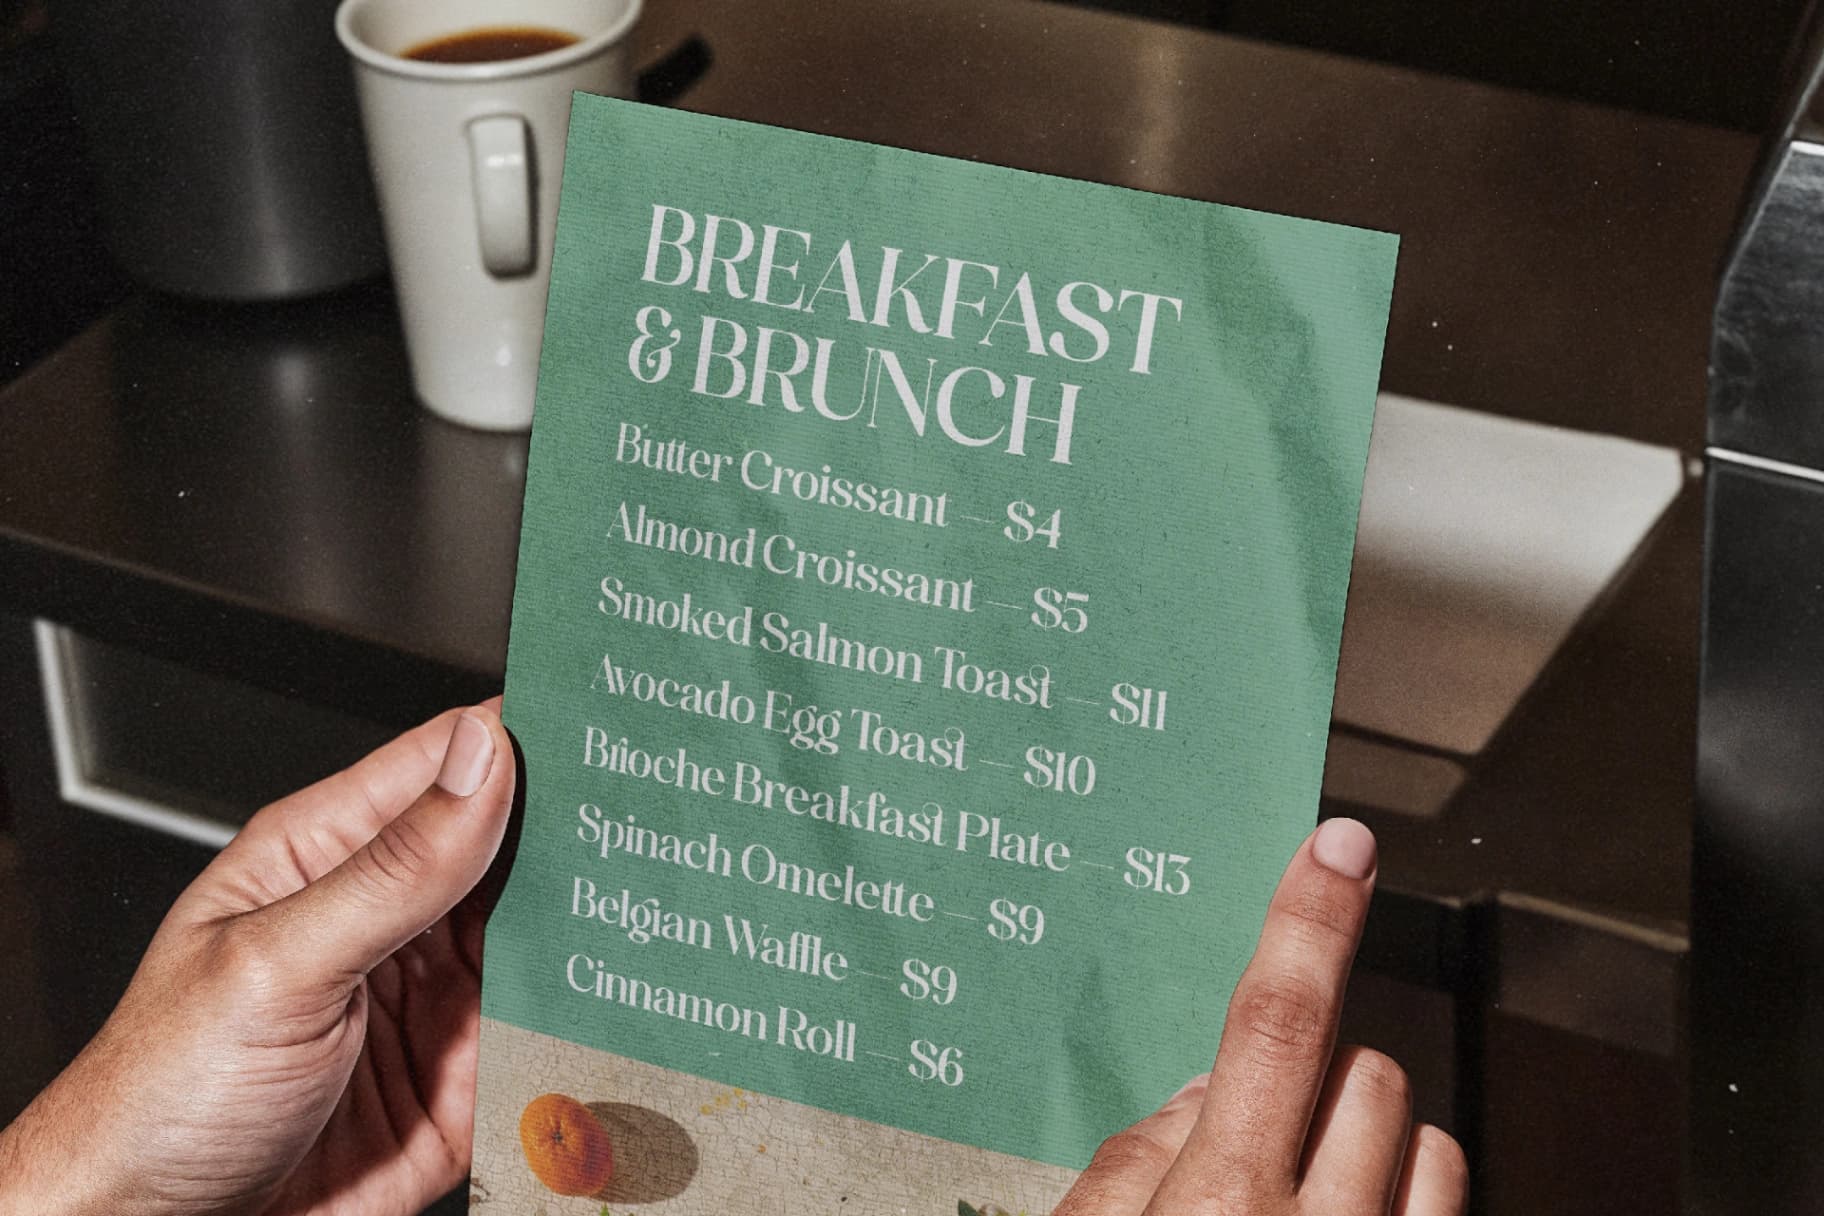 BREAKFAST
& BRUNCH
Butter Croissant — $4
Almond Croissant — $5
Smoked Salmon Toast — $11
Avocado Egg Toast — $10
Brioche Breakfast Plate — $13
Spinach Omelette — $9
Belgian Waffle — $9
Cinnamon Roll — $6